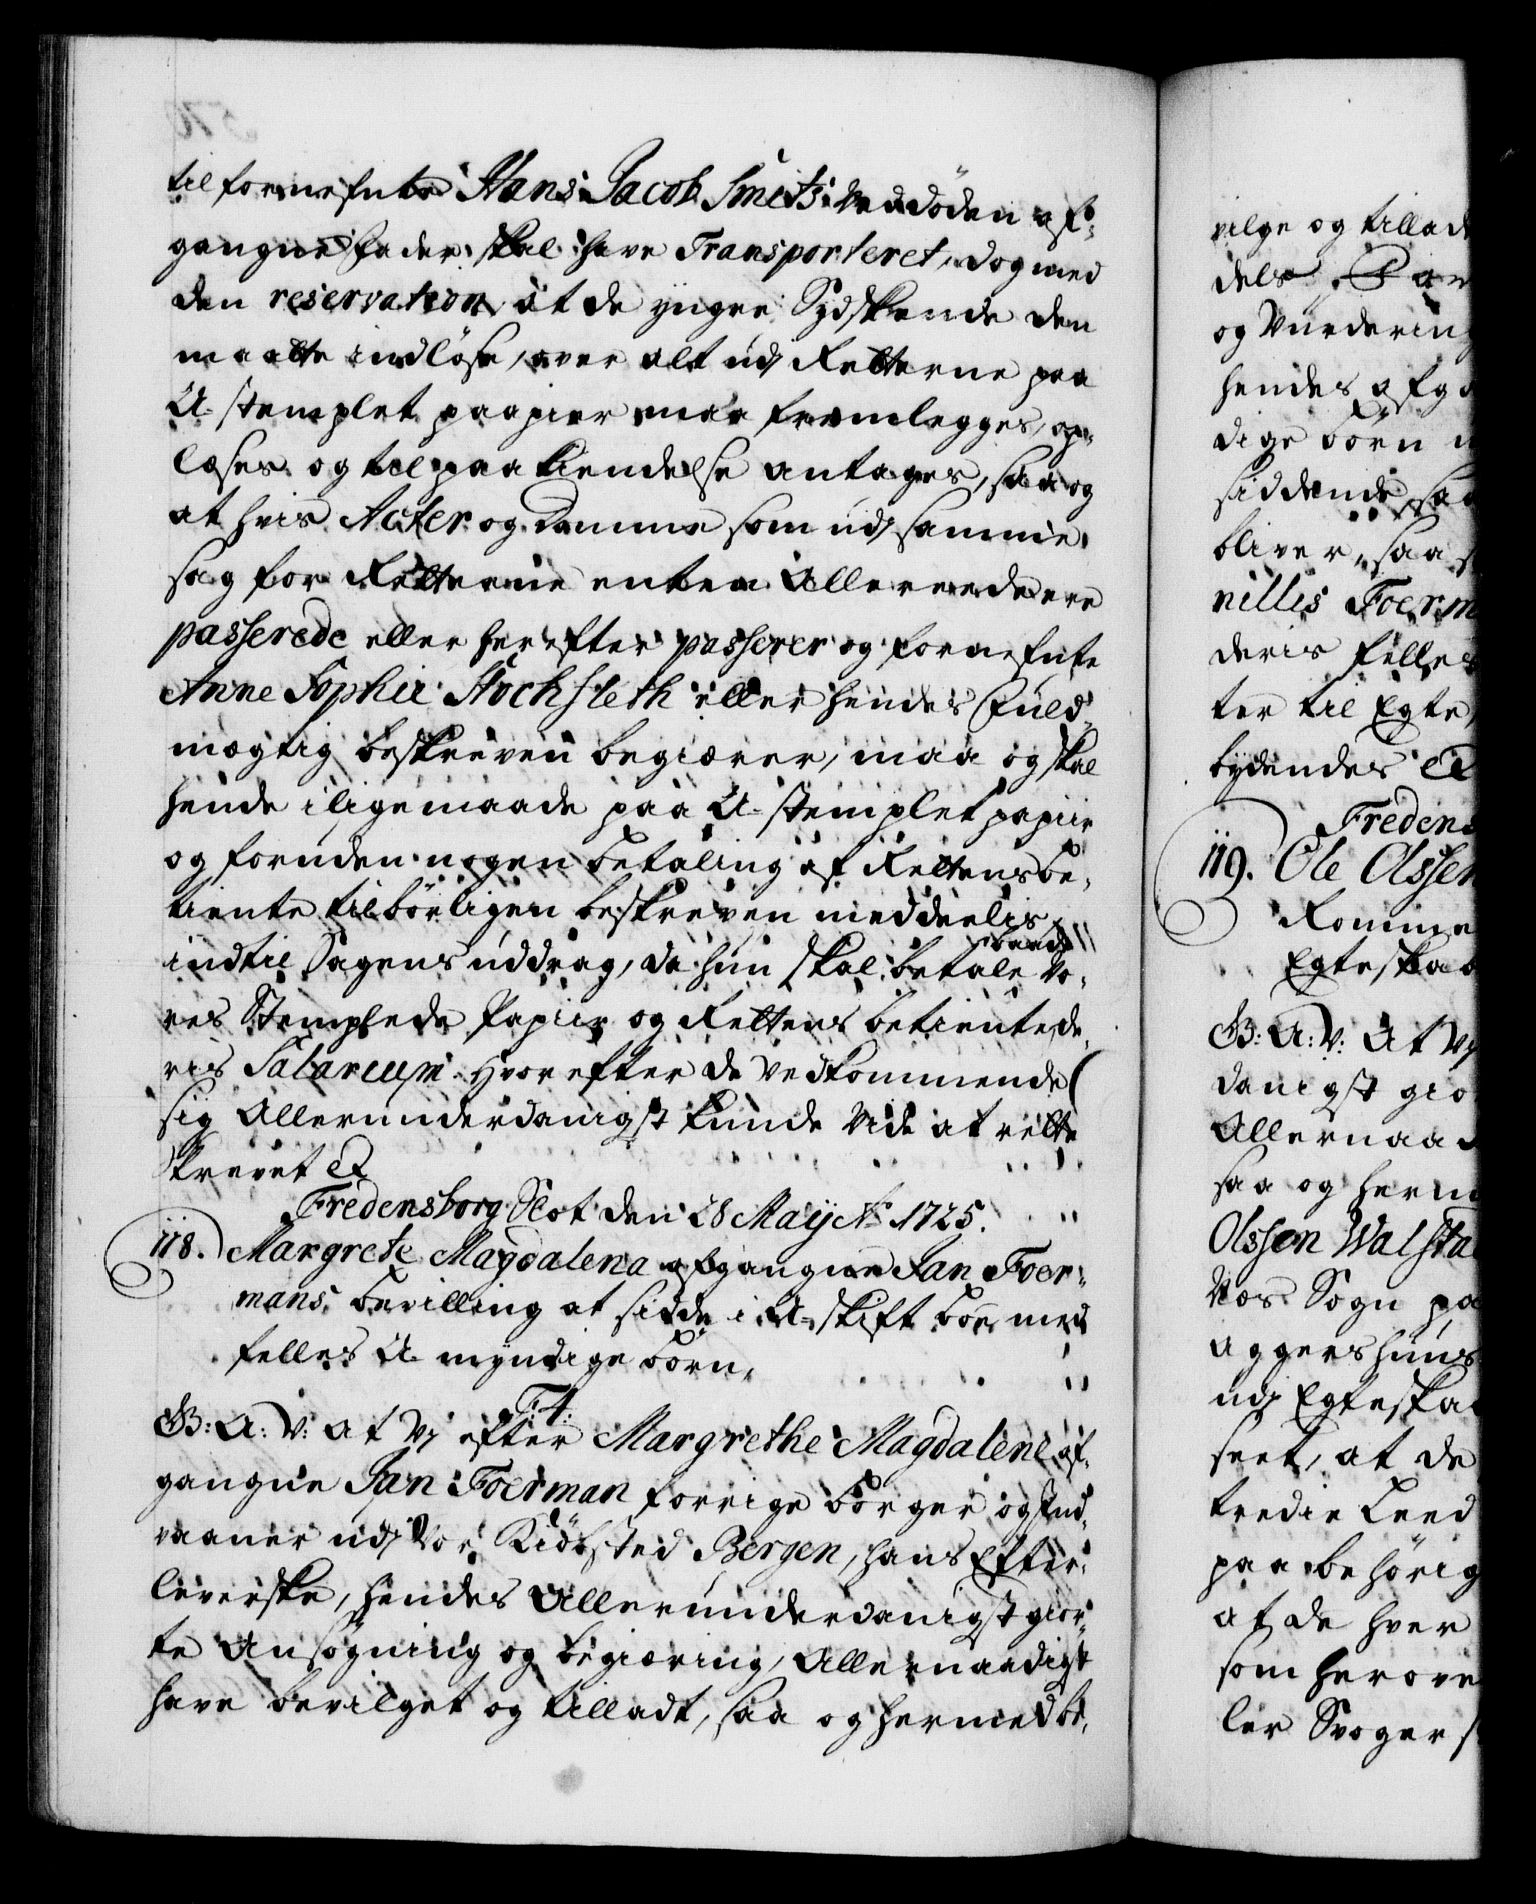 til fornefnte Hans Jacob Smets ved döden af-
gangne fader skal have Transporteret, dog med
den reservation at de yngre Sydskende den
maatte indlöse, over alt udj Retterne paa
U-stemplet paapier maa fremlegges, op-
læses og til paakiendelse antages, saa og
at hvis Acter og Domme som udj samme
sag for Retterne enten Allereede ere
passerede eller herefter passerer og fornefnte
Anne Sophie Hochsleth eller hendes Fuld-
mægtig beskreven begiærer, maa og skal
hende i ligemaade paa U-stemplet papiir
og foruden nogen betaling af Rettens be-
tiente tilbörligen beskreven meddeelis
indtil Sagens uddrag, da hun skal betale baade Vo-
res Stemplede Papiir og Rettens betiente de-
ris Salarium. Hvorefter de Vedkommende
sig Allerunderdanigst kunde vide at rette
Skrevet &
Fredensborg Slot den 28 Maij Ao 1725.
118. Margrete Magdalena afgangne Jan Foer-
mans, bevilling at sidde i U-skift boe med
felles U-myndige börn,
F: 4:
G: A: V: At Vj efter Margrethe Magdalene af-
gangne Jan Foerman forrige borger og ind-
vaaner udj Vor Kiöbsted Bergen, hans Efter-
leverske, hendes Allerunderdanigst gior-
te Ansögning og begiæring, Allernaadigst
have bevilget og tilladt, saa og hermed be-
vilge og tillade
dels
og Vurdering
hendes afga
dige börn
siddende, saa
bliver, saa
nillis Foerm
deris felles
ter til Egte
bydendes &
Fredens
119. Ole Olssen
Romme
Egteskab
G: A: V: At Vj
danigst gio
Allernaad
saa og herm
Olsson Walsta
Næs Sogn pa
Aggershuus
udj Egteska
seet, at de
tredie Leed
paa behörig
at de hver
som herove
ler Svogers